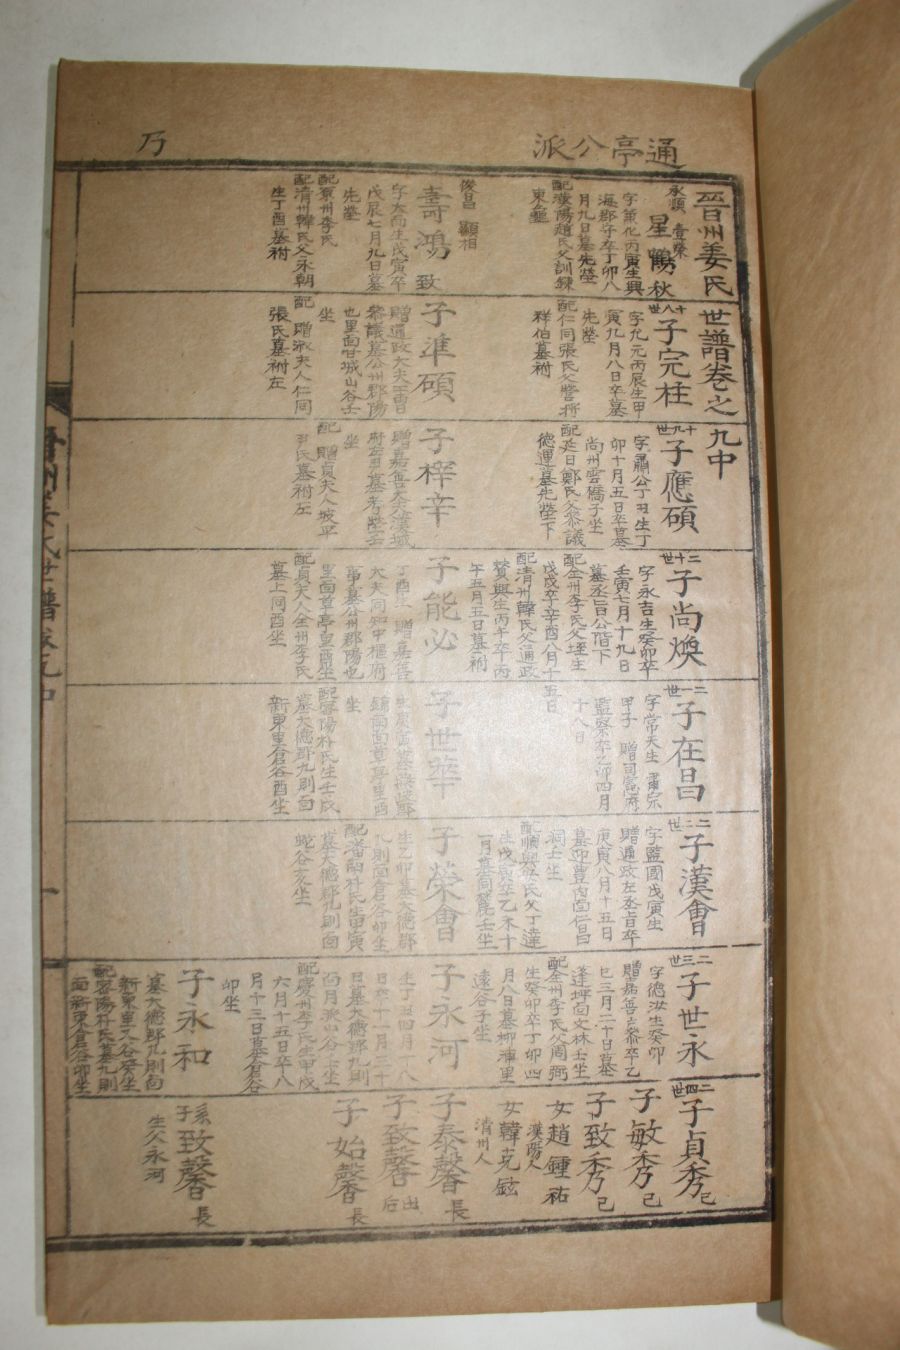 通亭公派
乃
晉州姜氏世譜卷之九中
永順 壹榮
星鶴 秋
字葉化丙寅生興
海郡守卒丁卯八
月九日墓先塋
配漢陽趙氏父訓鍊
東龜
俊昌 顯相
壽鴻 致
字大而生戊寅卒
戊辰七月九日墓
先塋
配原州李氏
配清州韓氏父永朝
生丁酉墓祔
十八世
子完柱
字允元丙辰生甲
寅九月八日卒墓
先塋
配仁同張氏父營將
祥伯墓祔
子準碩
贈通政大夫工曹
參議墓公州郡陽
也里面甘城山谷壬
坐
配 贈淑夫人仁同
張氏墓祔左
十九世
子應碩
字肅公丁丑生丁
卯十月五日卒墓
尚州雲橋子坐
配延日鄭氏父參議
德運墓先塋下
子梓辛
贈嘉善大夫漢城
府左尹墓考塋壬
坐
配 贈貞夫人坡平
尹氏墓祔左
二十世
子尚煥
字永吉生癸卯卒
壬寅七月十九日
墓丞旨公階下
配全州李氏父垤生
戊戌卒辛酉八月十五日
配清州韓氏父通政
贊興生丙午卒丙
午五月五日墓祔
子能必
丁酉生 贈嘉善
大夫同知中樞府
事墓公州郡陽也
里面草亭里酉坐
配貞夫人全州李氏
墓上同酉坐
二一世
子在昌
字常天生 肅宗
甲子 贈司憲府
監察卒乙卯四月
十八日
子世華
坐
配密陽朴氏生壬辰
墓大德郡九則面
新東里倉谷酉坐
二二世
子漢會
字監國戊寅生
贈通政左丞旨卒
庚寅八月十五日
墓迎豊內面仁昌
洞壬坐
配順興安氏父丁達
生戊寅卒乙未十
一月墓同麓壬坐
子榮會
生乙卯墓大德郡
九則面倉谷卯坐
配潘南朴氏生甲寅
墓大德郡九則面
蛇谷亥坐
二三世
子世永
字德汝生癸卯
贈嘉善戶參卒乙
巳三月二十日墓
蓬坪面文林壬坐
配全州李氏父周弼
生癸卯卒丁卯四
月八日墓柳浦里
遠谷子坐
子永河
生丁丑四月十八
日卒十一月二十
日墓大德郡九則
面月派山谷壬坐
配慶州李氏生甲戌
六月十五日卒八
月十三日墓倉谷
卯坐
子永和
墓大德郡九則面
新東里大谷癸坐
配密陽朴氏墓九則
面新東倉谷卯坐
二四世
子貞秀 己
子敏秀 己
子致秀 己
女趙鍾祐
漢陽人
女韓克鉉
清州人
子泰馨 長
子致馨 出后
子始馨 長
孫子致馨 長
生父永河
晉州姜氏世譜卷九中
一